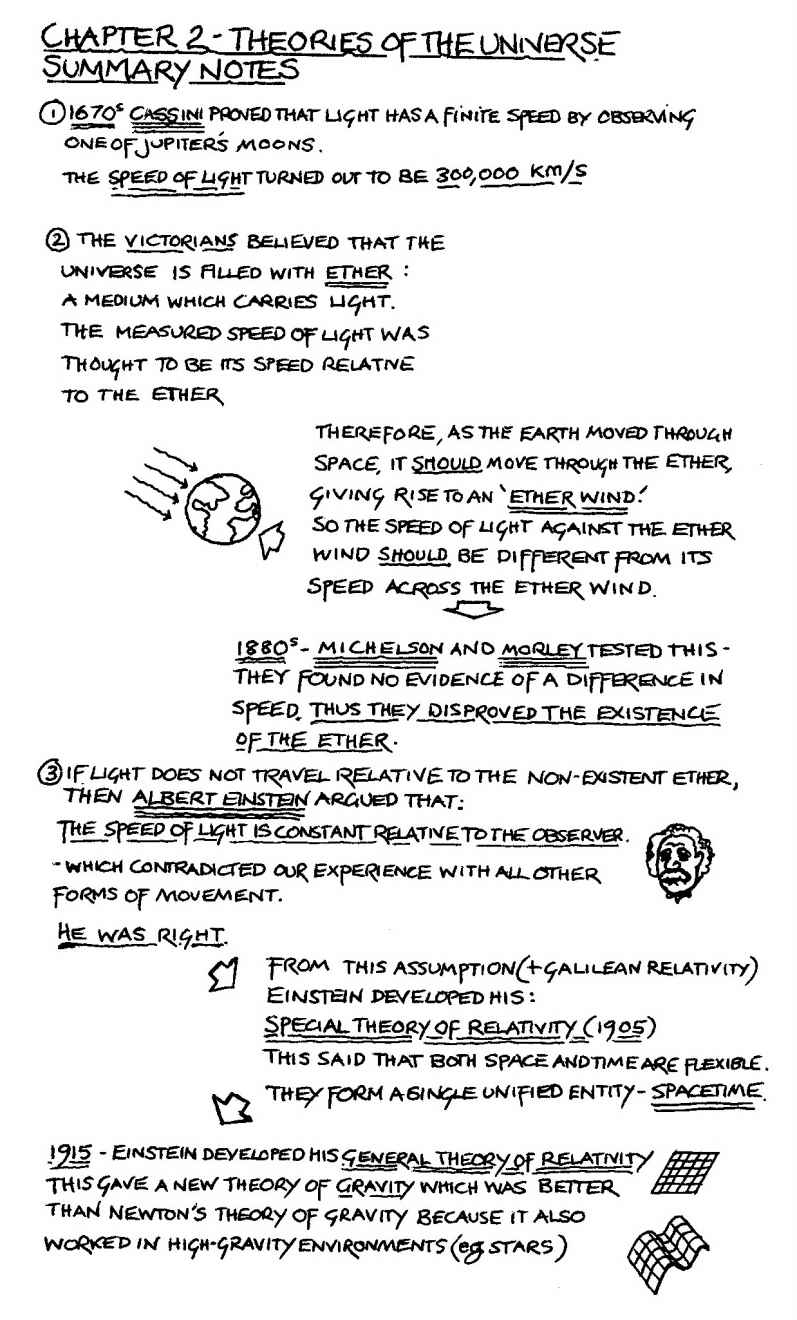 CHAPTER 2 - THEORIES OF THE UNIVERSE
SUMMARY NOTES
① 1670s CASSINI PROVED THAT LIGHT HAS A FINITE SPEED BY OBSERVING
ONE OF JUPITER'S MOONS.
THE SPEED OF LIGHT TURNED OUT TO BE 300,000 KM/S
② THE VICTORIANS BELIEVED THAT THE
UNIVERSE IS FILLED WITH ETHER :
A MEDIUM WHICH CARRIES LIGHT.
THE MEASURED SPEED OF LIGHT WAS
THOUGHT TO BE ITS SPEED RELATIVE
TO THE ETHER
THEREFORE, AS THE EARTH MOVED THROUGH
SPACE, IT SHOULD MOVE THROUGH THE ETHER,
GIVING RISE TO AN 'ETHER WIND'.
SO THE SPEED OF LIGHT AGAINST THE ETHER
WIND SHOULD BE DIFFERENT FROM ITS
SPEED ACROSS THE ETHER WIND.
1880s - MICHELSON AND MORLEY TESTED THIS -
THEY FOUND NO EVIDENCE OF A DIFFERENCE IN
SPEED. THUS THEY DISPROVED THE EXISTENCE
OF THE ETHER.
③ IF LIGHT DOES NOT TRAVEL RELATIVE TO THE NON-EXISTENT ETHER,
THEN ALBERT EINSTEIN ARGUED THAT:
THE SPEED OF LIGHT IS CONSTANT RELATIVE TO THE OBSERVER.
- WHICH CONTRADICTED OUR EXPERIENCE WITH ALL OTHER
FORMS OF MOVEMENT.
HE WAS RIGHT.
FROM THIS ASSUMPTION (+ GALILEAN RELATIVITY)
EINSTEIN DEVELOPED HIS :
SPECIAL THEORY OF RELATIVITY (1905)
THIS SAID THAT BOTH SPACE AND TIME ARE FLEXIBLE.
THEY FORM A SINGLE UNIFIED ENTITY - SPACETIME.
1915 - EINSTEIN DEVELOPED HIS GENERAL THEORY OF RELATIVITY
THIS GAVE A NEW THEORY OF GRAVITY WHICH WAS BETTER
THAN NEWTON'S THEORY OF GRAVITY BECAUSE IT ALSO
WORKED IN HIGH-GRAVITY ENVIRONMENTS (eg STARS)